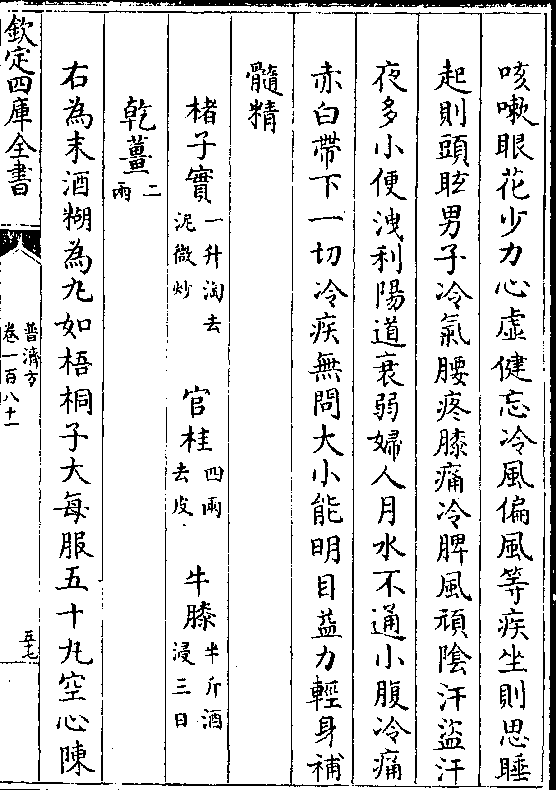 咳嗽眼花少力心虛健忘冷風偏風等疾坐則思睡
起則頭眩男子冷氣腰疼膝痛冷脾風頑陰汗盜汗
夜多小便洩利陽道衰弱婦人月水不通小腹冷痛
赤白帶下一切冷疾無問大小能明目益力輕身補
髓精
楮子實一升淘去泥微炒 官桂四兩去皮 牛膝半斤酒浸三日
乾薑二兩
右為末酒糊為丸如梧桐子大每服五十丸空心陳
欽定四庫全書
普濟方
卷一百八十一
五七